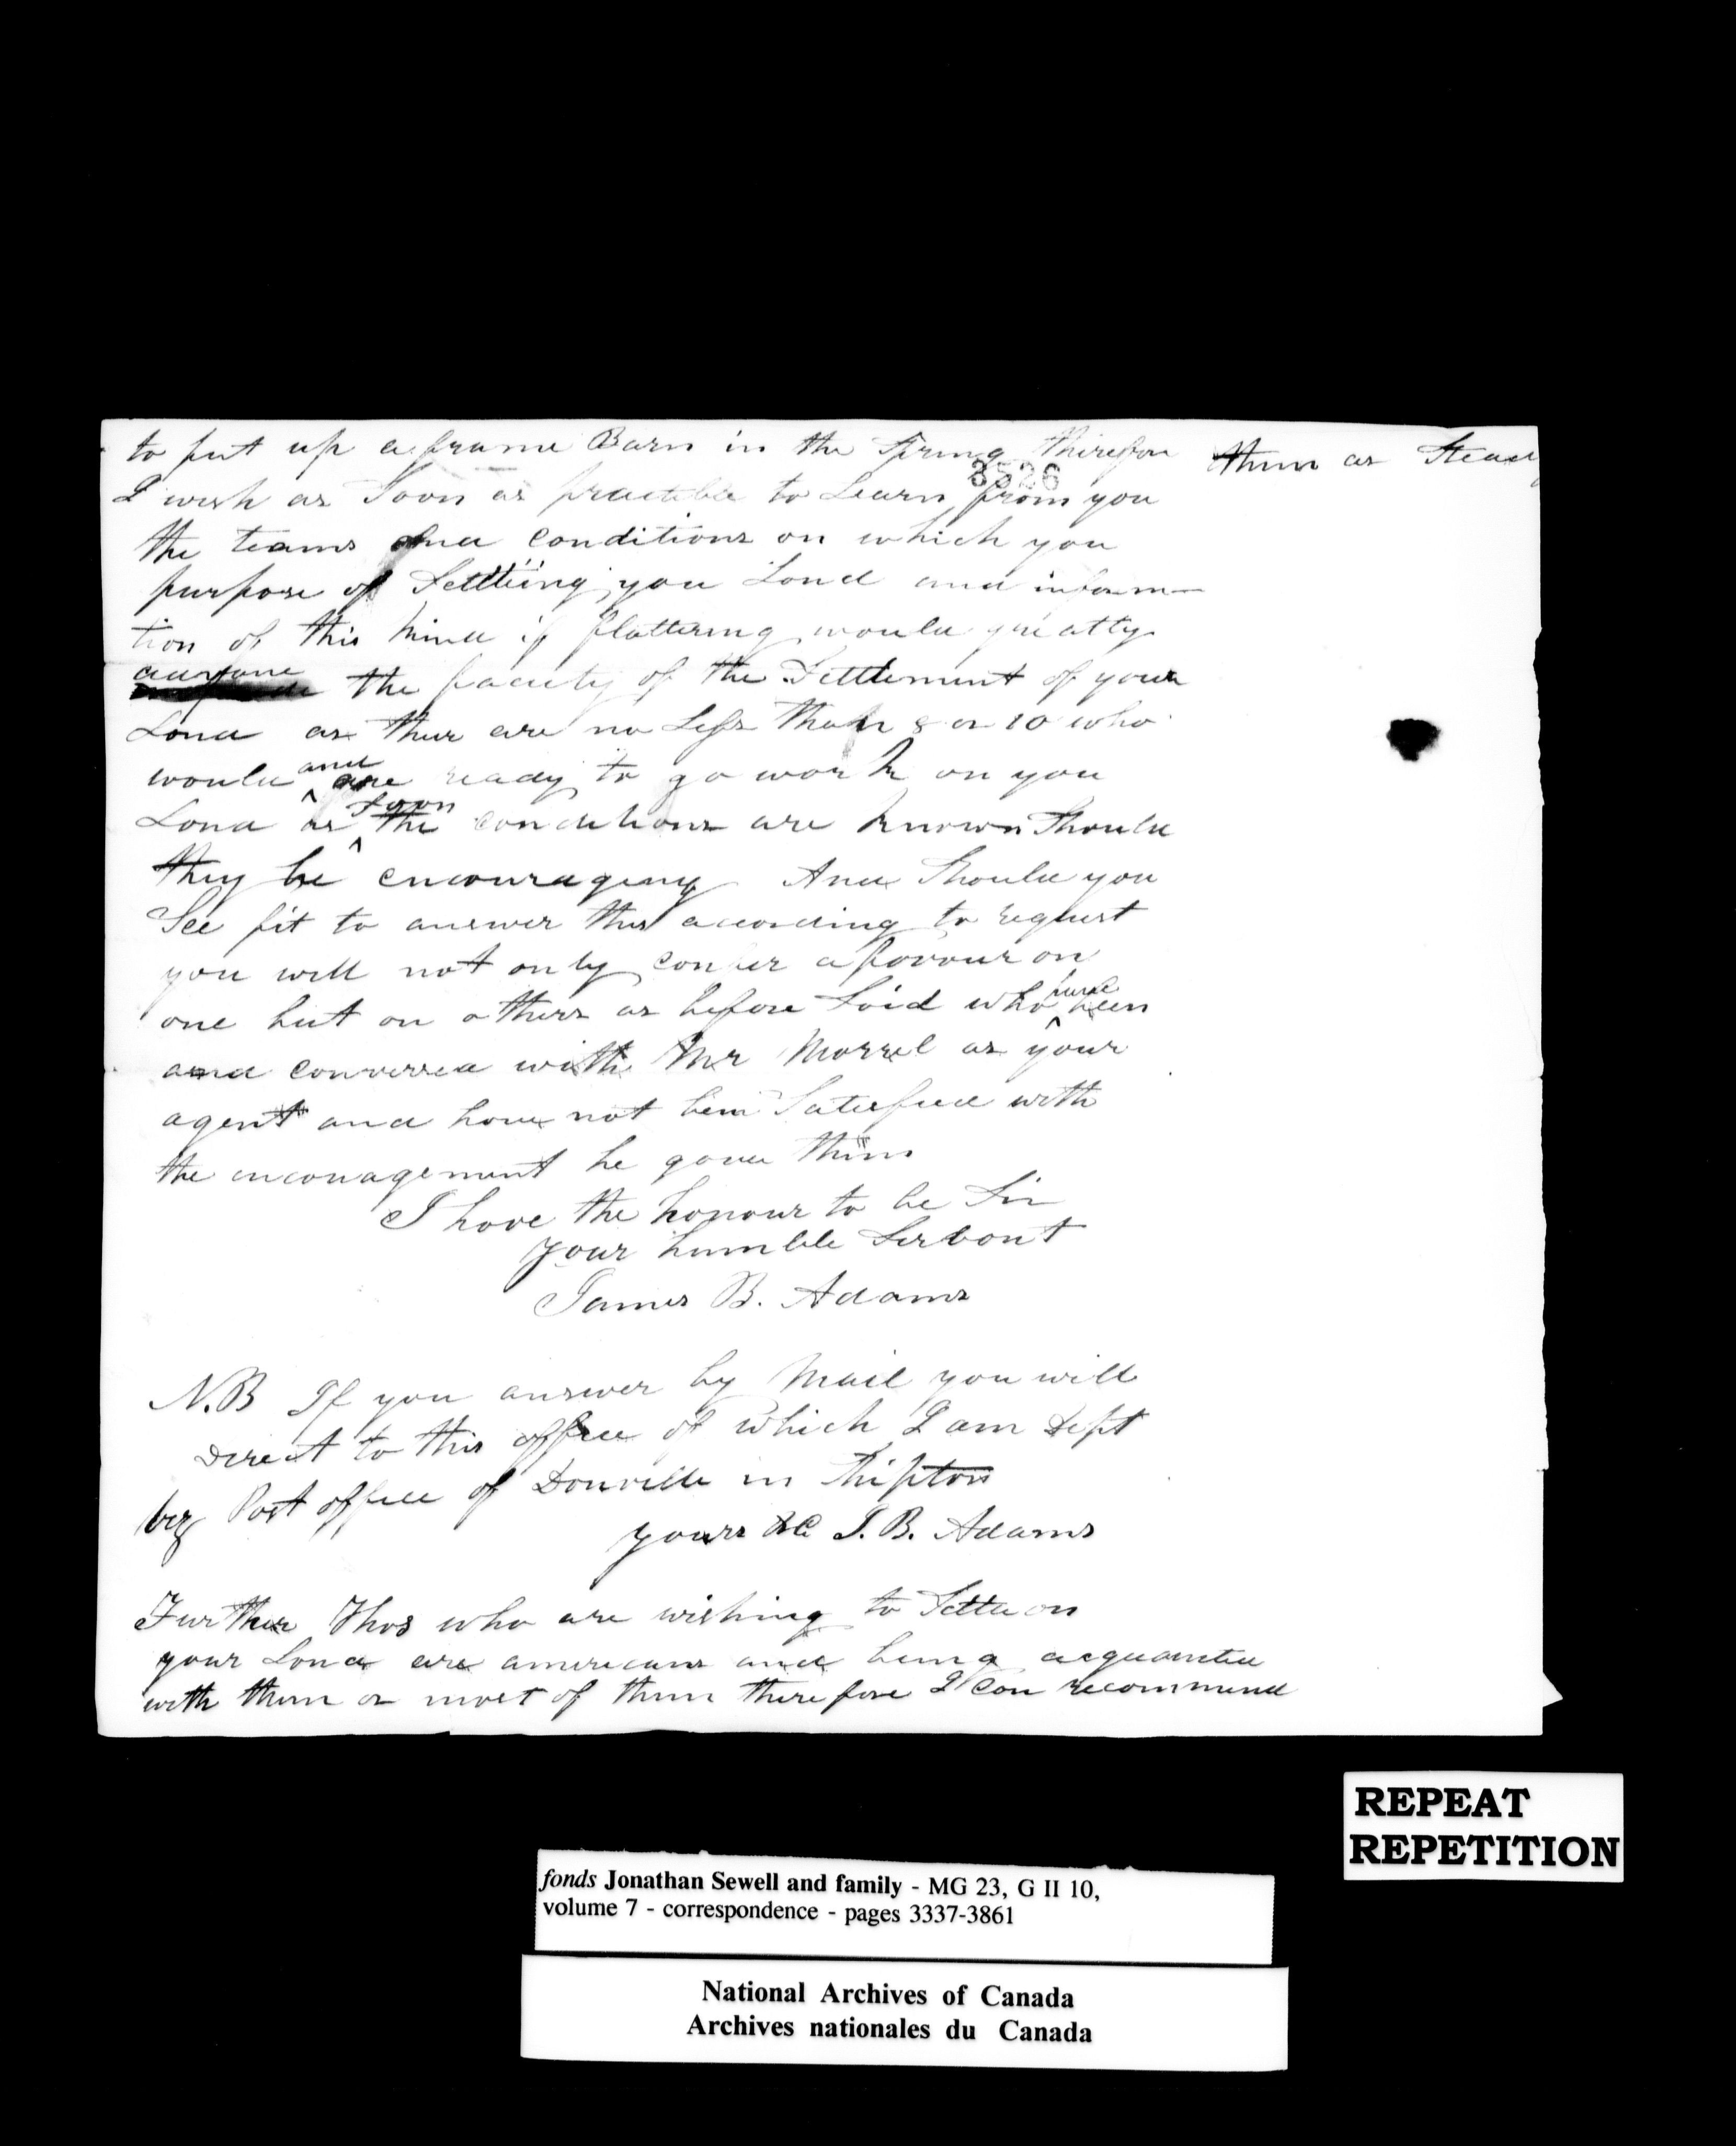 to put up a frame Barn in the Spring therefore
3526
I wish as Soon as practible to Learn from you
the teams and conditions on which you
purpose of Settling you Land and informa-
tion of this kind if flattering would greatly
the facility of the Settlement of your
Land as ther are no Less than 8 or 10 who
would and are ready to go work on you
Land as Soon the conditions are known Should
they be encouraging And Should you
See fit to answer this according to request
you will not only confer a favour on
one but on others as before Said who have been
and converced with Mr Morrel as your
agent and have not bein Satisfied with
the encouragement he gave them
I have the honour to be Sir
your humble Servant
James B. Adams
N.B If you answer by Mail you will
Direct to this office of which I am Dept
Post office of Donville in Shipton
yours &c J. B. Adams
Further Thos who are wishing to Settle on
your Land are americans and being acquainted
with them or most of them therefore I can recommend
them as Steady
REPEAT
REPETITION
fonds Jonathan Sewell and family - MG 23, G II 10,
volume 7 - correspondence - pages 3337-3861
National Archives of Canada
Archives nationales du Canada